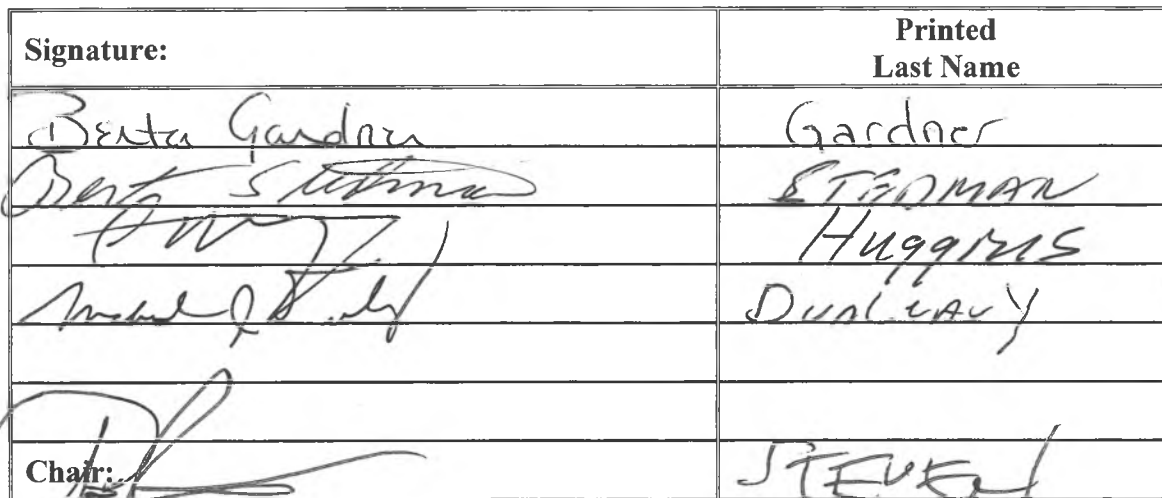 Signature:
Printed
Last Name
Berta Gardner Gardner
Berta Stedman STEDMAN
Huggins
Michael J DUNLEAVY
Chair: STEVEN